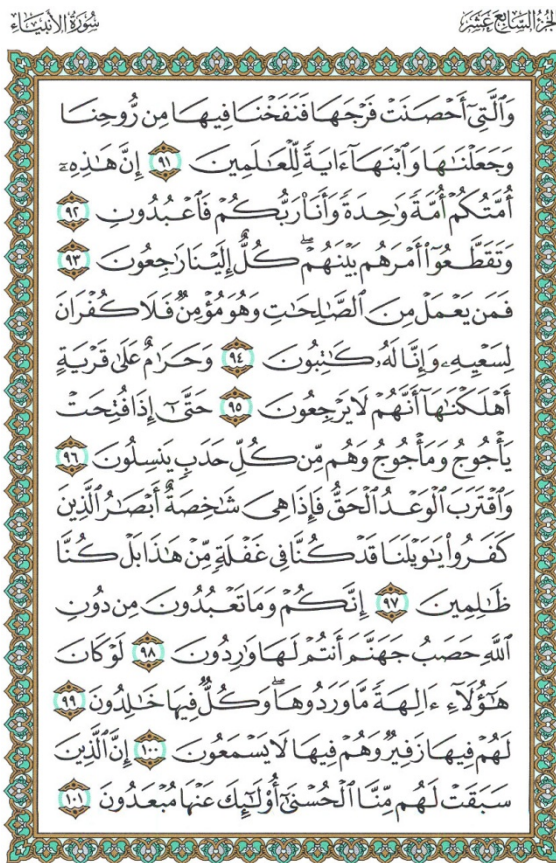 الجزء السابع عشر
سورة الأنبياء
وَٱلَّتِىٓ أَحْصَنَتْ فَرْجَهَا فَنَفَخْنَا فِيهَا مِن رُّوحِنَا
وَجَعَلْنَٰهَا وَٱبْنَهَآ ءَايَةً لِّلْعَٰلَمِينَ ٩١ إِنَّ هَٰذِهِۦٓ
أُمَّتُكُمْ أُمَّةً وَٰحِدَةً وَأَنَا۠ رَبُّكُمْ فَٱعْبُدُونِ ٩٢
وَتَقَطَّعُوٓا۟ أَمْرَهُم بَيْنَهُمْ ۖ كُلٌّ إِلَيْنَا رَٰجِعُونَ ٩٣
فَمَن يَعْمَلْ مِنَ ٱلصَّٰلِحَٰتِ وَهُوَ مُؤْمِنٌ فَلَا كُفْرَانَ
لِسَعْيِهِۦ وَإِنَّا لَهُۥ كَٰتِبُونَ ٩٤ وَحَرَٰمٌ عَلَىٰ قَرْيَةٍ
أَهْلَكْنَٰهَآ أَنَّهُمْ لَا يَرْجِعُونَ ٩٥ حَتَّىٰٓ إِذَا فُتِحَتْ
يَأْجُوجُ وَمَأْجُوجُ وَهُم مِّن كُلِّ حَدَبٍ يَنسِلُونَ ٩٦
وَٱقْتَرَبَ ٱلْوَعْدُ ٱلْحَقُّ فَإِذَا هِىَ شَٰخِصَةٌ أَبْصَٰرُ ٱلَّذِينَ
كَفَرُوا۟ يَٰوَيْلَنَا قَدْ كُنَّا فِى غَفْلَةٍ مِّنْ هَٰذَا بَلْ كُنَّا
ظَٰلِمِينَ ٩٧ إِنَّكُمْ وَمَا تَعْبُدُونَ مِن دُونِ
ٱللَّهِ حَصَبُ جَهَنَّمَ أَنتُمْ لَهَا وَٰرِدُونَ ٩٨ لَوْ كَانَ
هَٰٓؤُلَآءِ ءَالِهَةً مَّا وَرَدُوهَا ۖ وَكُلٌّ فِيهَا خَٰلِدُونَ ٩٩
لَهُمْ فِيهَا زَفِيرٌ وَهُمْ فِيهَا لَا يَسْمَعُونَ ١٠٠ إِنَّ ٱلَّذِينَ
سَبَقَتْ لَهُم مِّنَّا ٱلْحُسْنَىٰٓ أُو۟لَٰٓئِكَ عَنْهَا مُبْعَدُونَ ١٠١